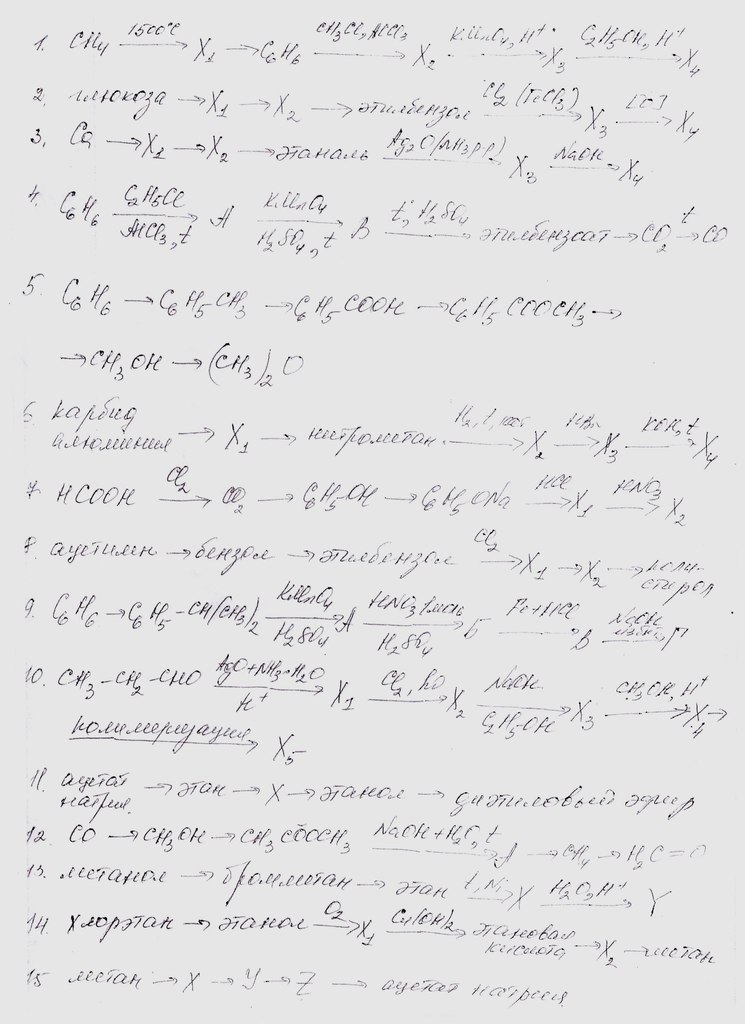 1. CH₄ —1500°C→ X₁ → C₆H₆ —CH₃Cl, AlCl₃→ X₂ —KMnO₄, H⁺→ X₃ —C₂H₅OH, H⁺→ X₄
2. глюкоза → X₁ → X₂ → этилбензол —Cl₂ (FeCl₃)→ X₃ —[O]→ X₄
3. Ca → X₁ → X₂ → этаналь —Ag₂O (NH₃ рр)→ X₃ —NaOH→ X₄
4. C₆H₆ —C₂H₅Cl / AlCl₃, t→ А —KMnO₄ / H₂SO₄, t→ В —t, H₂SO₄→ этилбензоат → CO₂ —t→ CO
5. C₆H₆ → C₆H₅CH₃ → C₆H₅COOH → C₆H₅COOCH₃ →
→ CH₃OH → (CH₃)₂O
6. карбид алюминия → X₁ → нитрометан —H₂, t, кат→ X₂ —HBr→ X₃ —KOH, t→ X₄
7. HCOOH —Cl₂→ CO₂ → C₆H₅OH → C₆H₅ONa —HCl→ X₁ —HNO₃→ X₂
8. ацетилен → бензол → этилбензол —Cl₂→ X₁ → X₂ → полистирол
9. C₆H₆ → C₆H₅-CH(CH₃)₂ —KMnO₄ / H₂SO₄→ А —HNO₃ 1моль / H₂SO₄→ Б —Fe+HCl→ В —NaOH избыт→ Г
10. CH₃-CH₂-CHO —AgO+NH₃·H₂O / H⁺→ X₁ —Cl₂, hν→ X₂ —NaOH / C₂H₅OH→ X₃ —CH₃OH, H⁺→ X₄ →
—полимеризация→ X₅
11. ацетат натрия → этан → X → этанол → диэтиловый эфир
12. CO → CH₃OH → CH₃COOCH₃ —NaOH+H₂O, t→ А → CH₄ → H₂C=O
13. метанол → бромметан → этан —t, Ni→ X —H₂O, H⁺→ Y
14. хлорэтан → этанол —O₂→ X₁ —Cu(OH)₂→ этановая кислота → X₂ → метан
15 метан → X → Y → Z → ацетат натрия